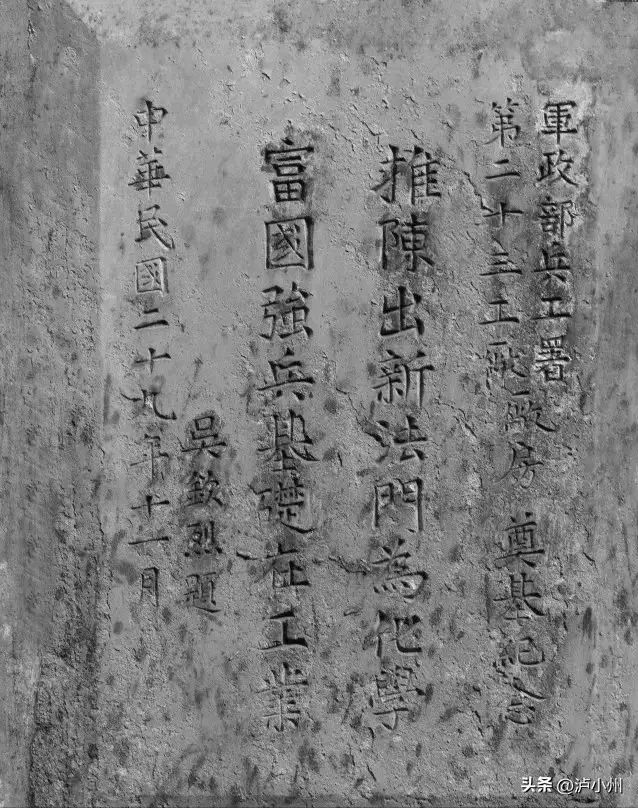 軍政部兵工署
第二十三工廠廠房奠基紀念
推陳出新法門為化學
富國強兵基礎在工業
吳欽烈題
中華民國二十九年十一月
头条 @泸小州